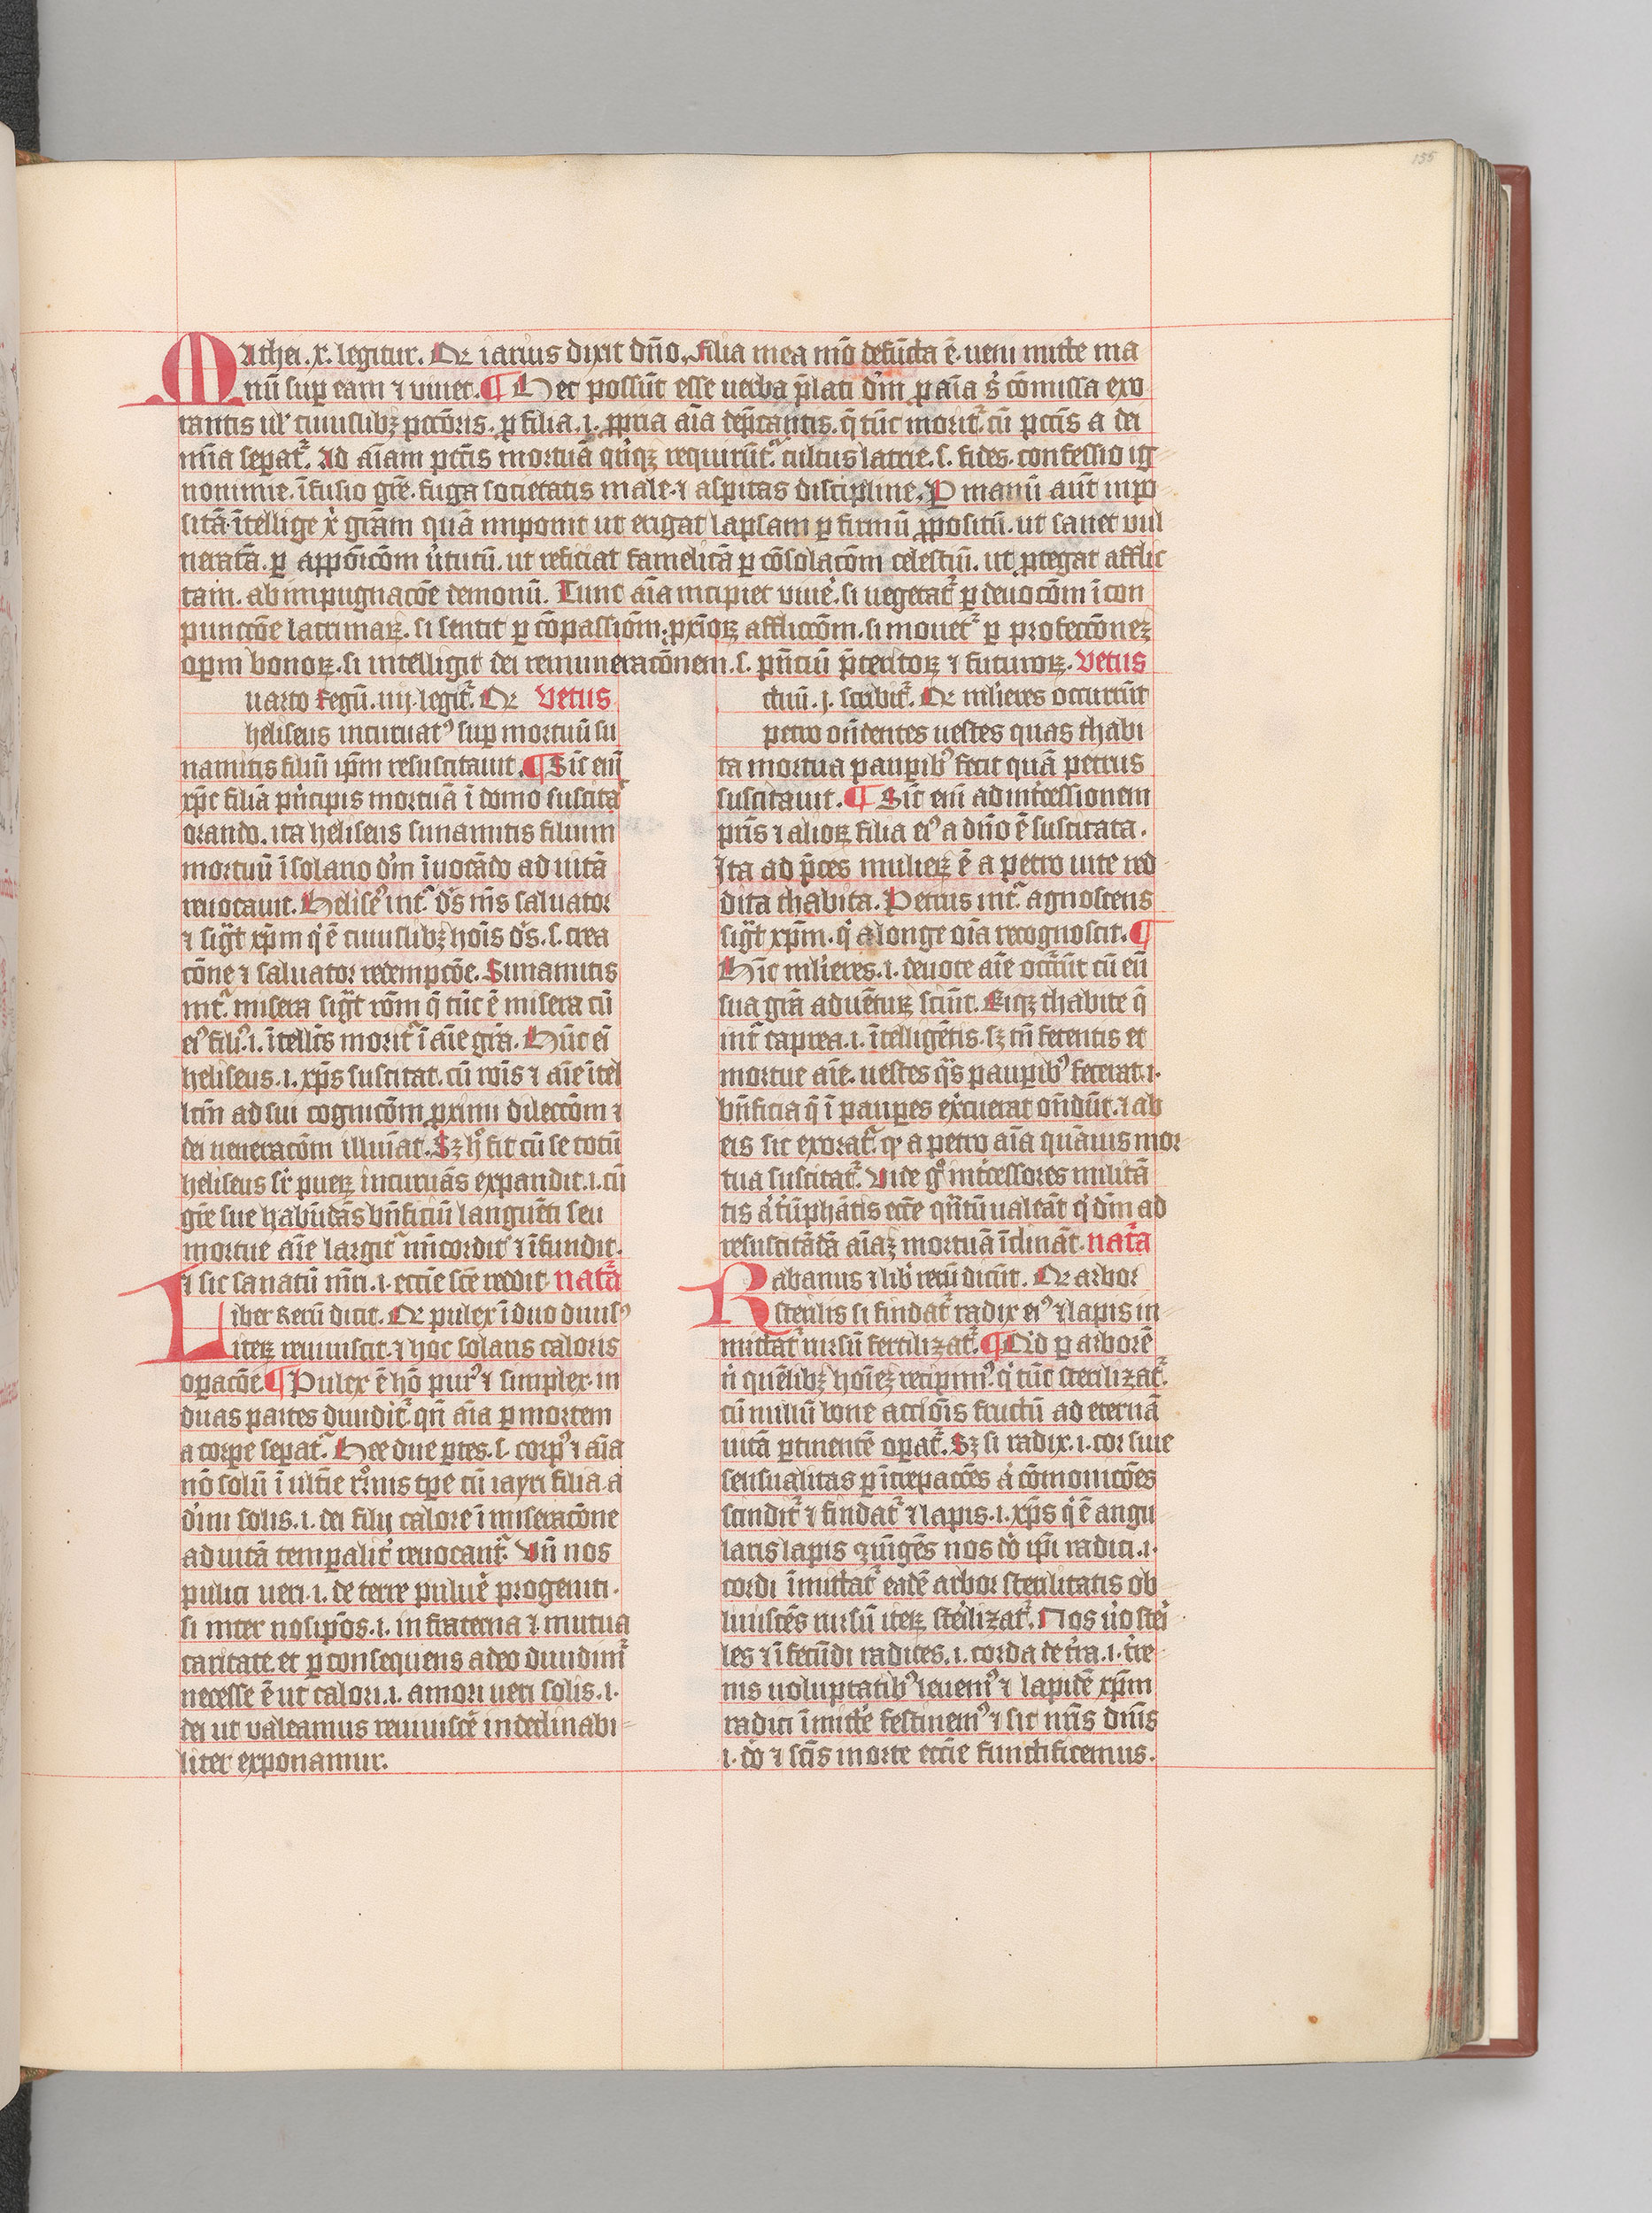 135
Mathei .x. legitur. Qr iairus dixit dño. filia mea mō defūcta ē. ueni mitte ma
nū sup eam ⁊ viuet. ¶ Hec possūt esse uerba p̄lati dm̄ p aīa s̓ cōmissa exo
rantis ul' cuiuslibꝫ pctōris. p filia .i. ꝓpria aīa dep̄cantis. q̄ tūc moritᷣ. cū pctīs a dei
nūa sepatᷣ. Ad aīam pctīs mortuā qīqꝫ requirūtᷣ. cultus latrie .s. fides. confessio ig
nominie. īfusio grē. fuga societatis male. ⁊ aspitas discipline. P manū aūt inpo
sitā ītellige x̓ grām quā imponit ut erigat lapsam p firmū ꝓpositū. ut sanet vul
neratā. p appōicōm v̓tutū. ut reficiat famelicā p cōsolacōm celestiū. ut ꝓtegat afflic
tam. ab impugnacōe demonū. Tunc aīa incipiet viue̓. si uegetatᷣ p deuocōm ī con
punctōe lacrimaꝝ. si sentit p cōpassiōm. ꝓxīoꝝ afflictōm. si mouetᷣ p profectōneꝫ
opm bonoꝝ. si intelligit dei remuneracōnem .s. p̄ntiū p̄teritoꝝ ⁊ futuroꝝ. Vetus
uarto regū .iiij. legitᷣ. Qr Vetus
heliseus incuruatꝰ sup mortuū su
namitis filiū ip̄m resuscitauit. ¶ Sic enī
xp̄c filiā pn̓cipis mortuā ī domo suscitaᷓ
orando. ita heliseus sunamitis filium
mortuū ī solario dm̄ īuocādo ad uitā
reuocauit. Helisēꝰ intᷣ. d̄s m̄s saluator
⁊ sigᷓt xp̄m qͥ ē cuiuslibꝫ hoīs d̄s. s. crea
cōne ⁊ saluator redempcōe. Sunamitis
intᷣ. misera sigᷓt rōm q̄ tūc ē misera cū
eiꝰ filiꝰ .i. ītellc̄s moritᷣ ī aīe grā. Hūc eī
heliseus .i. xp̄s suscitat. cū rōis ⁊ aīe ītel
lcm̄ ad sui cognicōm ꝓximi dilectōm ⁊
dei ueneracōm illuīat. Sꝫ hͦ fit cū se totū
heliseus sr̄ pueꝝ incuruās expandit. i. cū
grē sue habūdās bn̄ficiū languēti seu
mortue aīe largitᷣ mīcorditᷣ ⁊ īfundit.
⁊ sic sanatū mr̄i .i. ecc̄ie sc̄e reddit. natᷓa
Liber Rerū dicit. Qr pulex ī duo diuisꝰ
iteꝝ reuiuiscit. ⁊ hoc solaris caloris
opacōe. ¶ Pulex ē hō purꝰ ⁊ simplex. in
duas partes diuiditᷣ. qn̄ aīa p mortem
a corpe sepatᷣ. Hee due ptes .s. corpꝰ ⁊ aīa
nō solū ī ultīe rͦōnis tpe cū iayri filia. a
dn̄i solis .i. dei filij calore ī miseracōne
ad uitā tempalitᷣ reuocantᷣ. Vn̄ nos
pulici ueri .i. de terre puluē progeniti.
si inter nosip̄os .i. in fraterna ⁊ mutua
caritate. et p consequens a deo diuidimᷣ
necesse ē ut calori .i. amori ueri solis .i.
dei ut valeamus reuiuisce̓ indeclinabi
liter exponamur.
ctuū .j. scribitᷣ. Qr mlieres occurrūt
petro on̄dentes uestes quas thabi
ta mortua paupibꝰ fecit quā petrus
suscitauit. ¶ Sic enī ad intc̓essionem
pr̄is ⁊ alioꝝ filia eiꝰ a dn̄o ē suscitata.
Ita ad p̄ces mulieꝝ ē a petro uite red
dita thabita. Petrus intᷣ. agnoscens
sigᷓt xp̄m. qͥ a longe oīa recognoscit. ¶
Hīc mlieres .i. deuote aīe occr̄rūt cū eū
sua grā aduētuꝝ sciūt. Eiqꝫ thabite q̄
intᷣ caprea .i. ītelligētis. sꝫ tn̄ fetentis et
mortue aīe. uestes qᷓs paupibꝰ fecerat .i.
bn̄ficia q̄ ī paupes exc̓uerat on̄dūt. ⁊ ab
eis sic exoratᷣ. qꝫ a petro aīa quāuis mor
tua suscitatᷣ. Vide gͦ intc̓essores militā
tis a̓ tͥūphātis ecc̄e qn̄tū ualeāt qͥ dm̄ ad
resuscitādā aīaꝫ mortuā īclināt. natᷓa
Rabanus ⁊ libᷣ rerū dicūt. Qr arbor
sterilis si findatᷣ radix eiꝰ ⁊ lapis in
mittatᷣ rursū fertilizatᷣ. ¶ Qͥd p arborē
n̓ quēlibꝫ hoīeꝫ recipimꝰ. qͥ tūc sterilizatᷣ.
cū nullū bone actiōis fructū ad eternā
uitā ptinentē opatᷣ. Sꝫ si radix .i. cor siue
sensualitas p īcrepacōes a̓ cōmonicōes
scinditᷣ ⁊ findatᷣ ⁊ lapis .i. xp̄s qͥ ē angu
laris lapis ꝯiūgēs nos dō ip̄i radici .i.
cordi īmittatᷣ eadē arbor sterilitatis ob
liuiscēs rursū iteꝝ ste̓ilizatᷣ. Nos v̓o ste̓i
les ⁊ īfecūdi radices .i. corda de tr̓a .i. tr̓e
nis uoluptatibꝰ leuemꝰ ⁊ lapidē xp̄m
radici īmitte̓ festinemꝰ ⁊ sic nr̄is dn̄is
.i. dō ⁊ sc̄is morte ecc̄ie fructificemus.